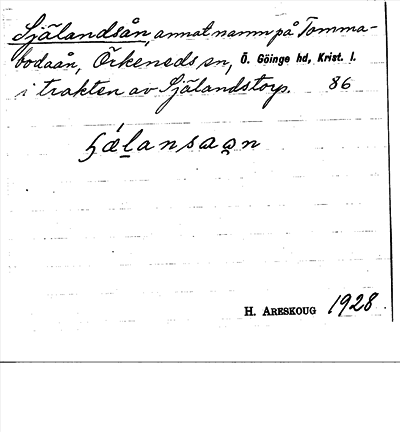 Själandsån, annat namn på Tomma-
bodaån, Örkeneds sn, Ö. Göinge hd, Krist. l.
i trakten av Själandstorp. 86
H. Areskoug 1928